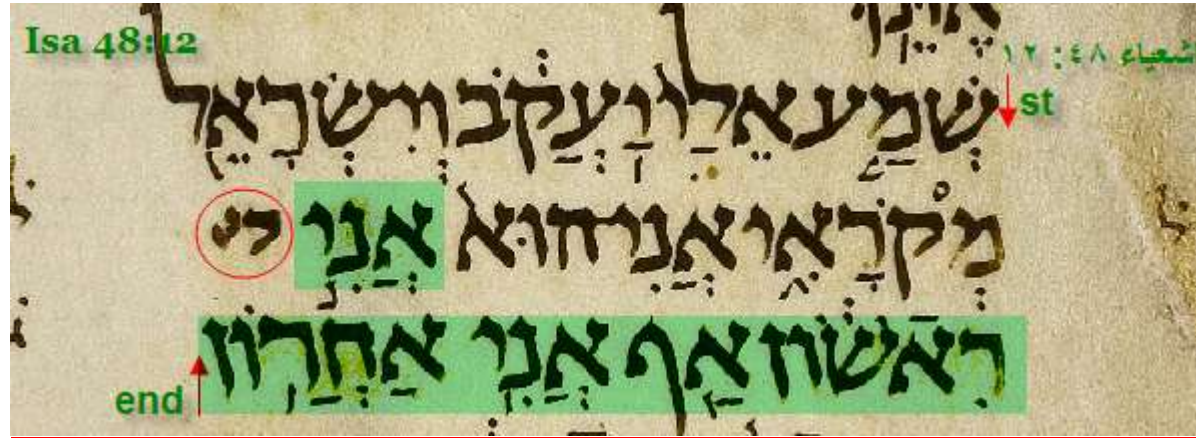 Isa 48:12
شعياء ٤٨: ١٢
st
שְׁמַע אֵלַי יַעֲקֹב וְיִשְׂרָאֵל
מְקֹרָאִי אֲנִי הוּא אֲנִי
רִאשׁוֹן אַף אֲנִי אַחֲרוֹן
end